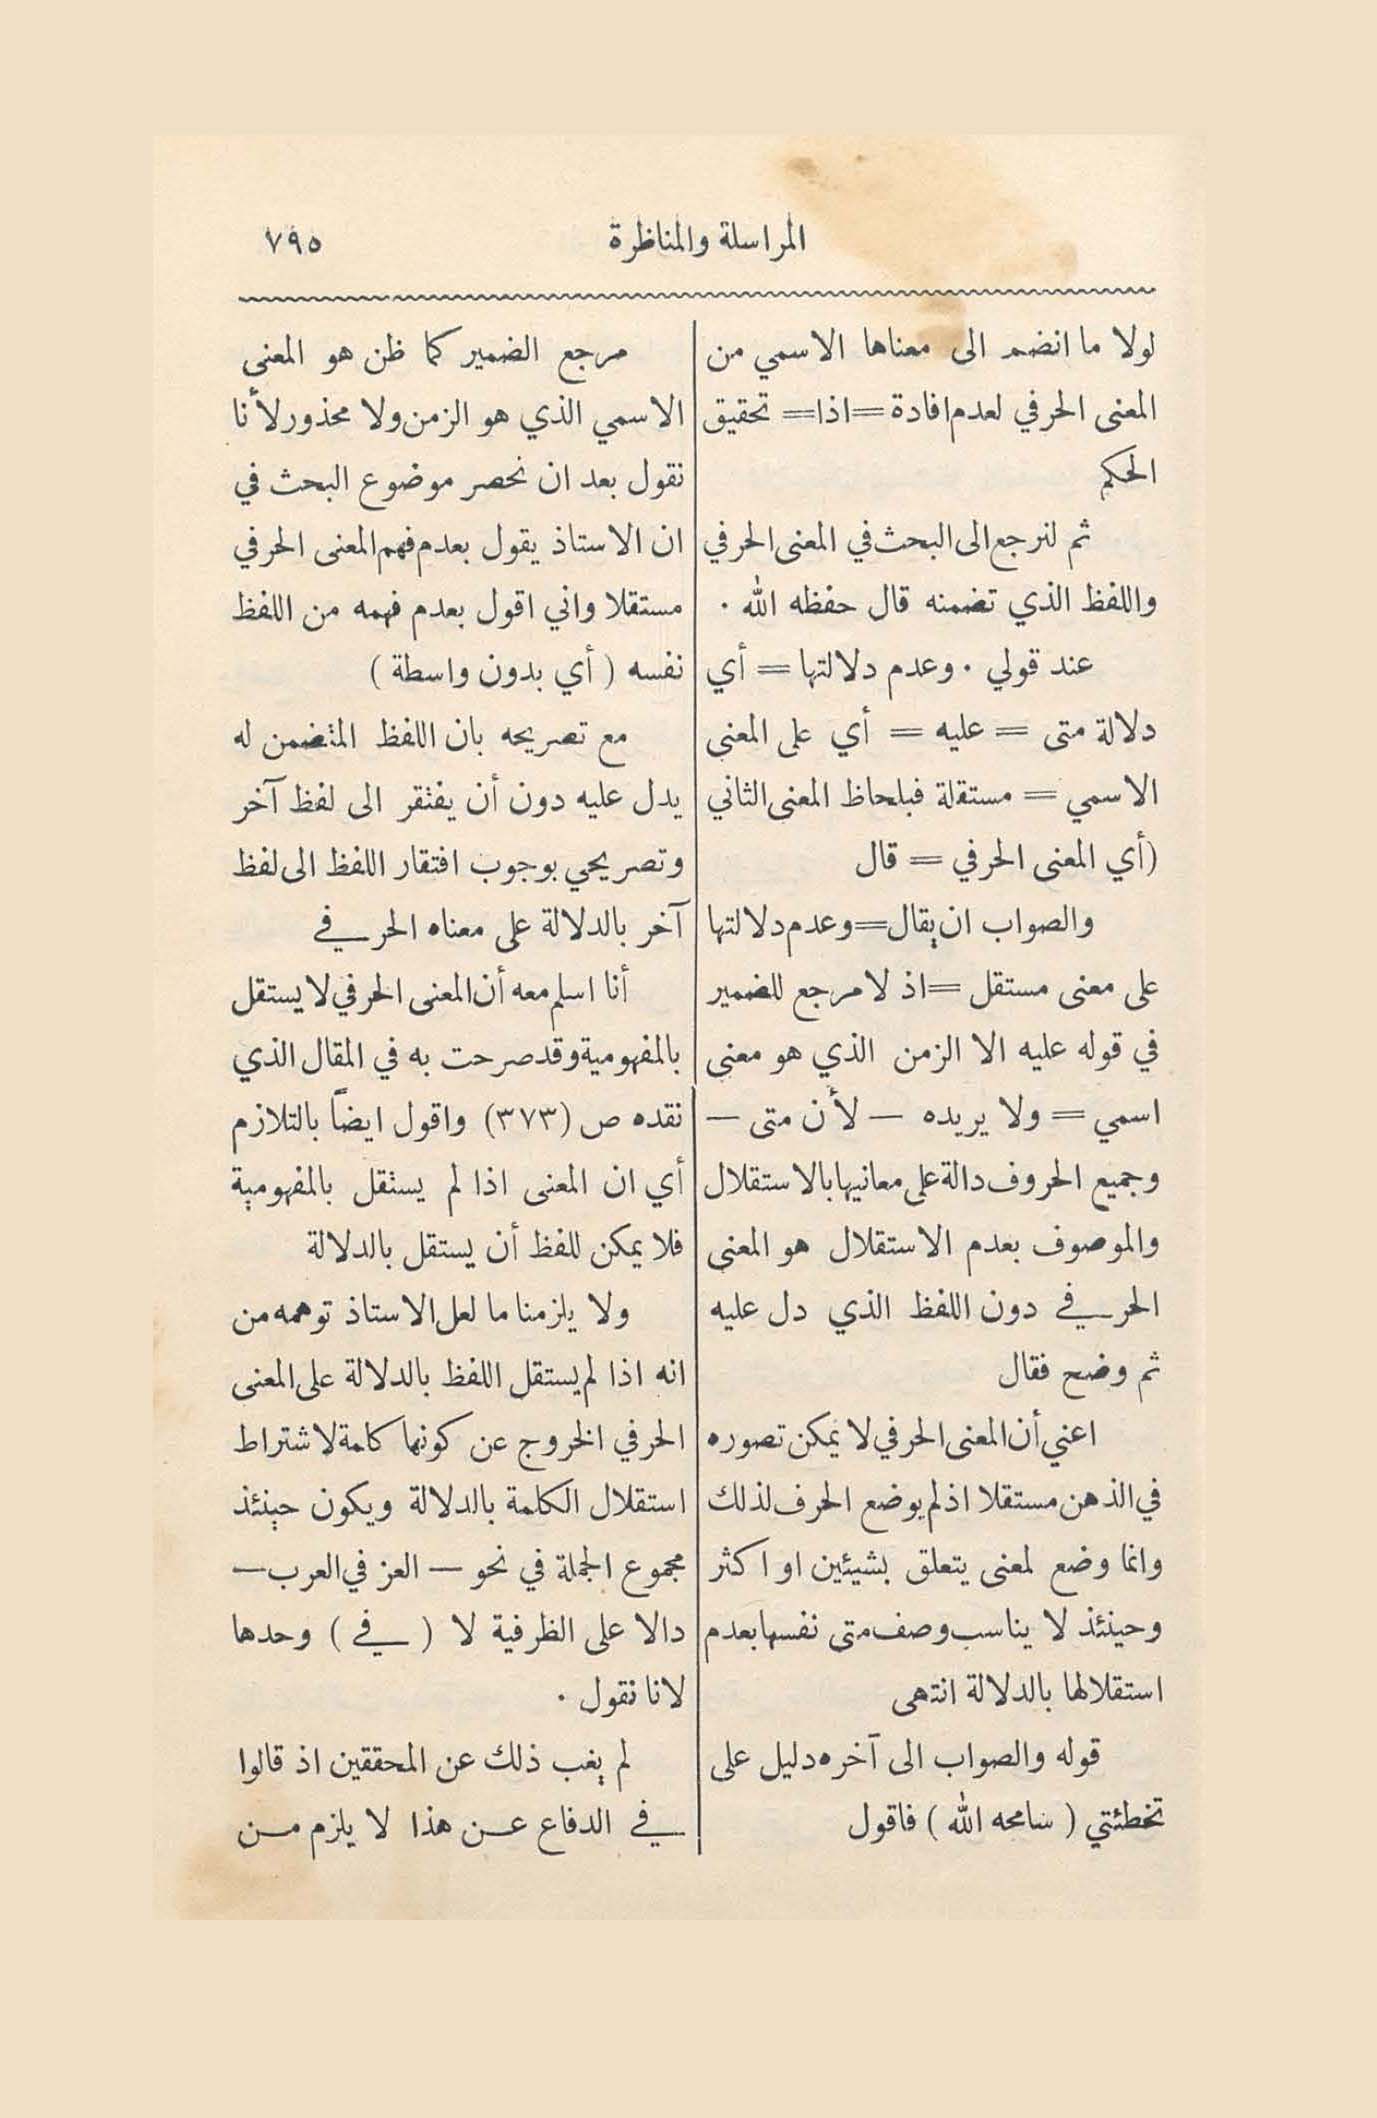 المراسلة والمناظرة ٧٩٥
لولا ما انضم الى معناها الاسمي من
المعنى الحرفي لعدم افادة = اذا = تحقيق
الحكم
ثم لنرجع الى البحث في المعنى الحرفي
واللفظ الذي تضمنه قال حفظه الله .
عند قولي . وعدم دلالتها = أي
دلالة متى = عليه = أي على المعنى
الاسمي = مستقلة فبلحاظ المعنى الثاني
(أي المعنى الحرفي = قال
والصواب ان يقال = وعدم دلالتها
على معنى مستقل = اذ لا مرجع للضمير
في قوله عليه الا الزمن الذي هو معنى
اسمي = ولا يريده — لأن متى —
وجميع الحروف دالة على معانيها بالاستقلال
والموصوف بعدم الاستقلال هو المعنى
الحرفي دون اللفظ الذي دل عليه
ثم وضح فقال
اعني أن المعنى الحرفي لا يمكن تصوره
في الذهن مستقلا اذ لم يوضع الحرف لذلك
وانما وضع لمعنى يتعلق بشيئين او اكثر
وحينئذ لا يناسب وصف متى نفسها بعدم
استقلالها بالدلالة انتهى
قوله والصواب الى آخره دليل على
تخطئتي ( سامحه الله ) فاقول
مرجع الضمير كما ظن هو المعنى
الاسمي الذي هو الزمن ولا محذور لأنا
نقول بعد ان نحصر موضوع البحث في
ان الاستاذ يقول بعدم فهم المعنى الحرفي
مستقلا واني اقول بعدم فهمه من اللفظ
نفسه ( أي بدون واسطة )
مع تصريحه بان اللفظ المتضمن له
يدل عليه دون أن يفتقر الى لفظ آخر
وتصريحي بوجوب افتقار اللفظ الى لفظ
آخر بالدلالة على معناه الحرفي
أنا اسلم معه أن المعنى الحرفي لا يستقل
بالمفهومية وقد صرحت به في المقال الذي
نقده ص (٣٧٣) واقول ايضاً بالتلازم
أي ان المعنى اذا لم يستقل بالمفهومية
فلا يمكن للفظ أن يستقل بالدلالة
ولا يلزمنا ما لعل الاستاذ توهمه من
انه اذا لم يستقل اللفظ بالدلالة على المعنى
الحرفي الخروج عن كونها كلمة لاشتراط
استقلال الكلمة بالدلالة ويكون حينئذ
مجموع الجملة في نحو — العز في العرب —
دالا على الظرفية لا ( في ) وحدها
لانا نقول .
لم يغب ذلك عن المحققين اذ قالوا
في الدفاع عن هذا لا يلزم من